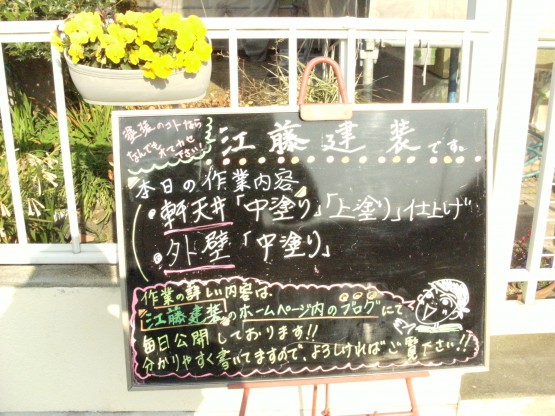 塗装のコトなら
なんでもオマカセ
下さい!
江藤建装です。
本日の作業内容
軒天井「中塗り」「上塗り」仕上げ
外壁「中塗り」
作業の詳しい内容は、
江藤建装のホームページ内のブログにて
毎日公開しております!!
分かりやすく書いてますので、よろしければご覧下さい!!